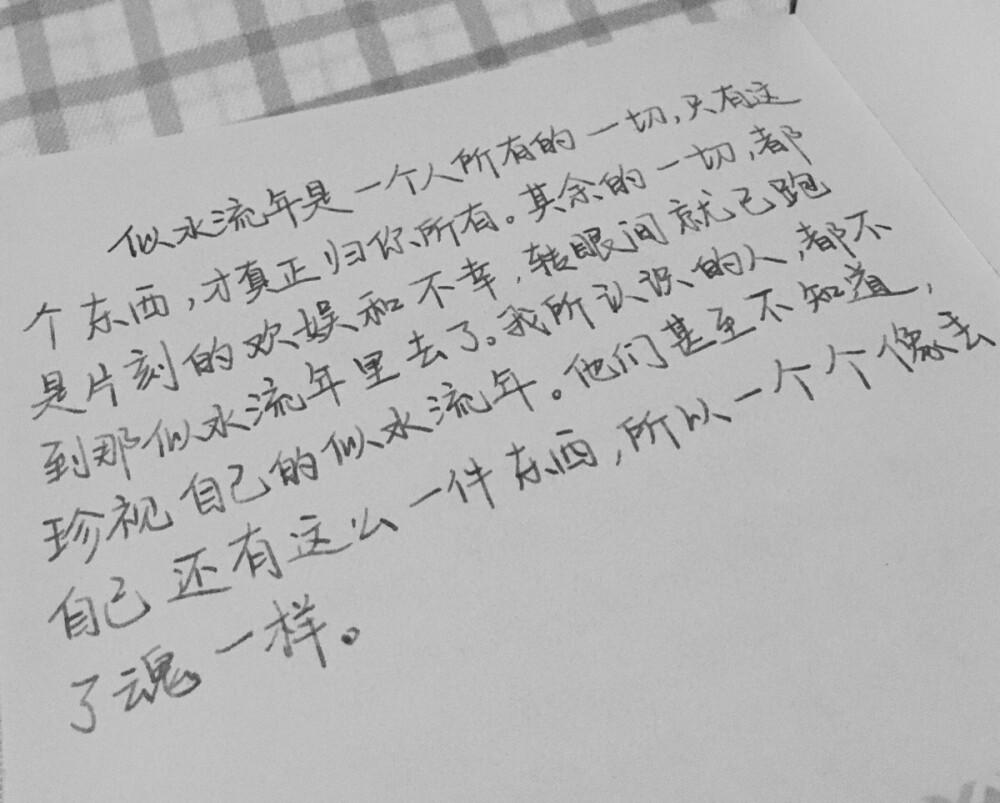 似水流年是一个人所有的一切,只有这
个东西,才真正归你所有。其余的一切,都
是片刻的欢娱和不幸,转眼间就已跑
到那似水流年里去了。我所认识的人,都不
珍视自己的似水流年。他们甚至不知道,
自己还有这么一件东西,所以一个个像丢
了魂一样。